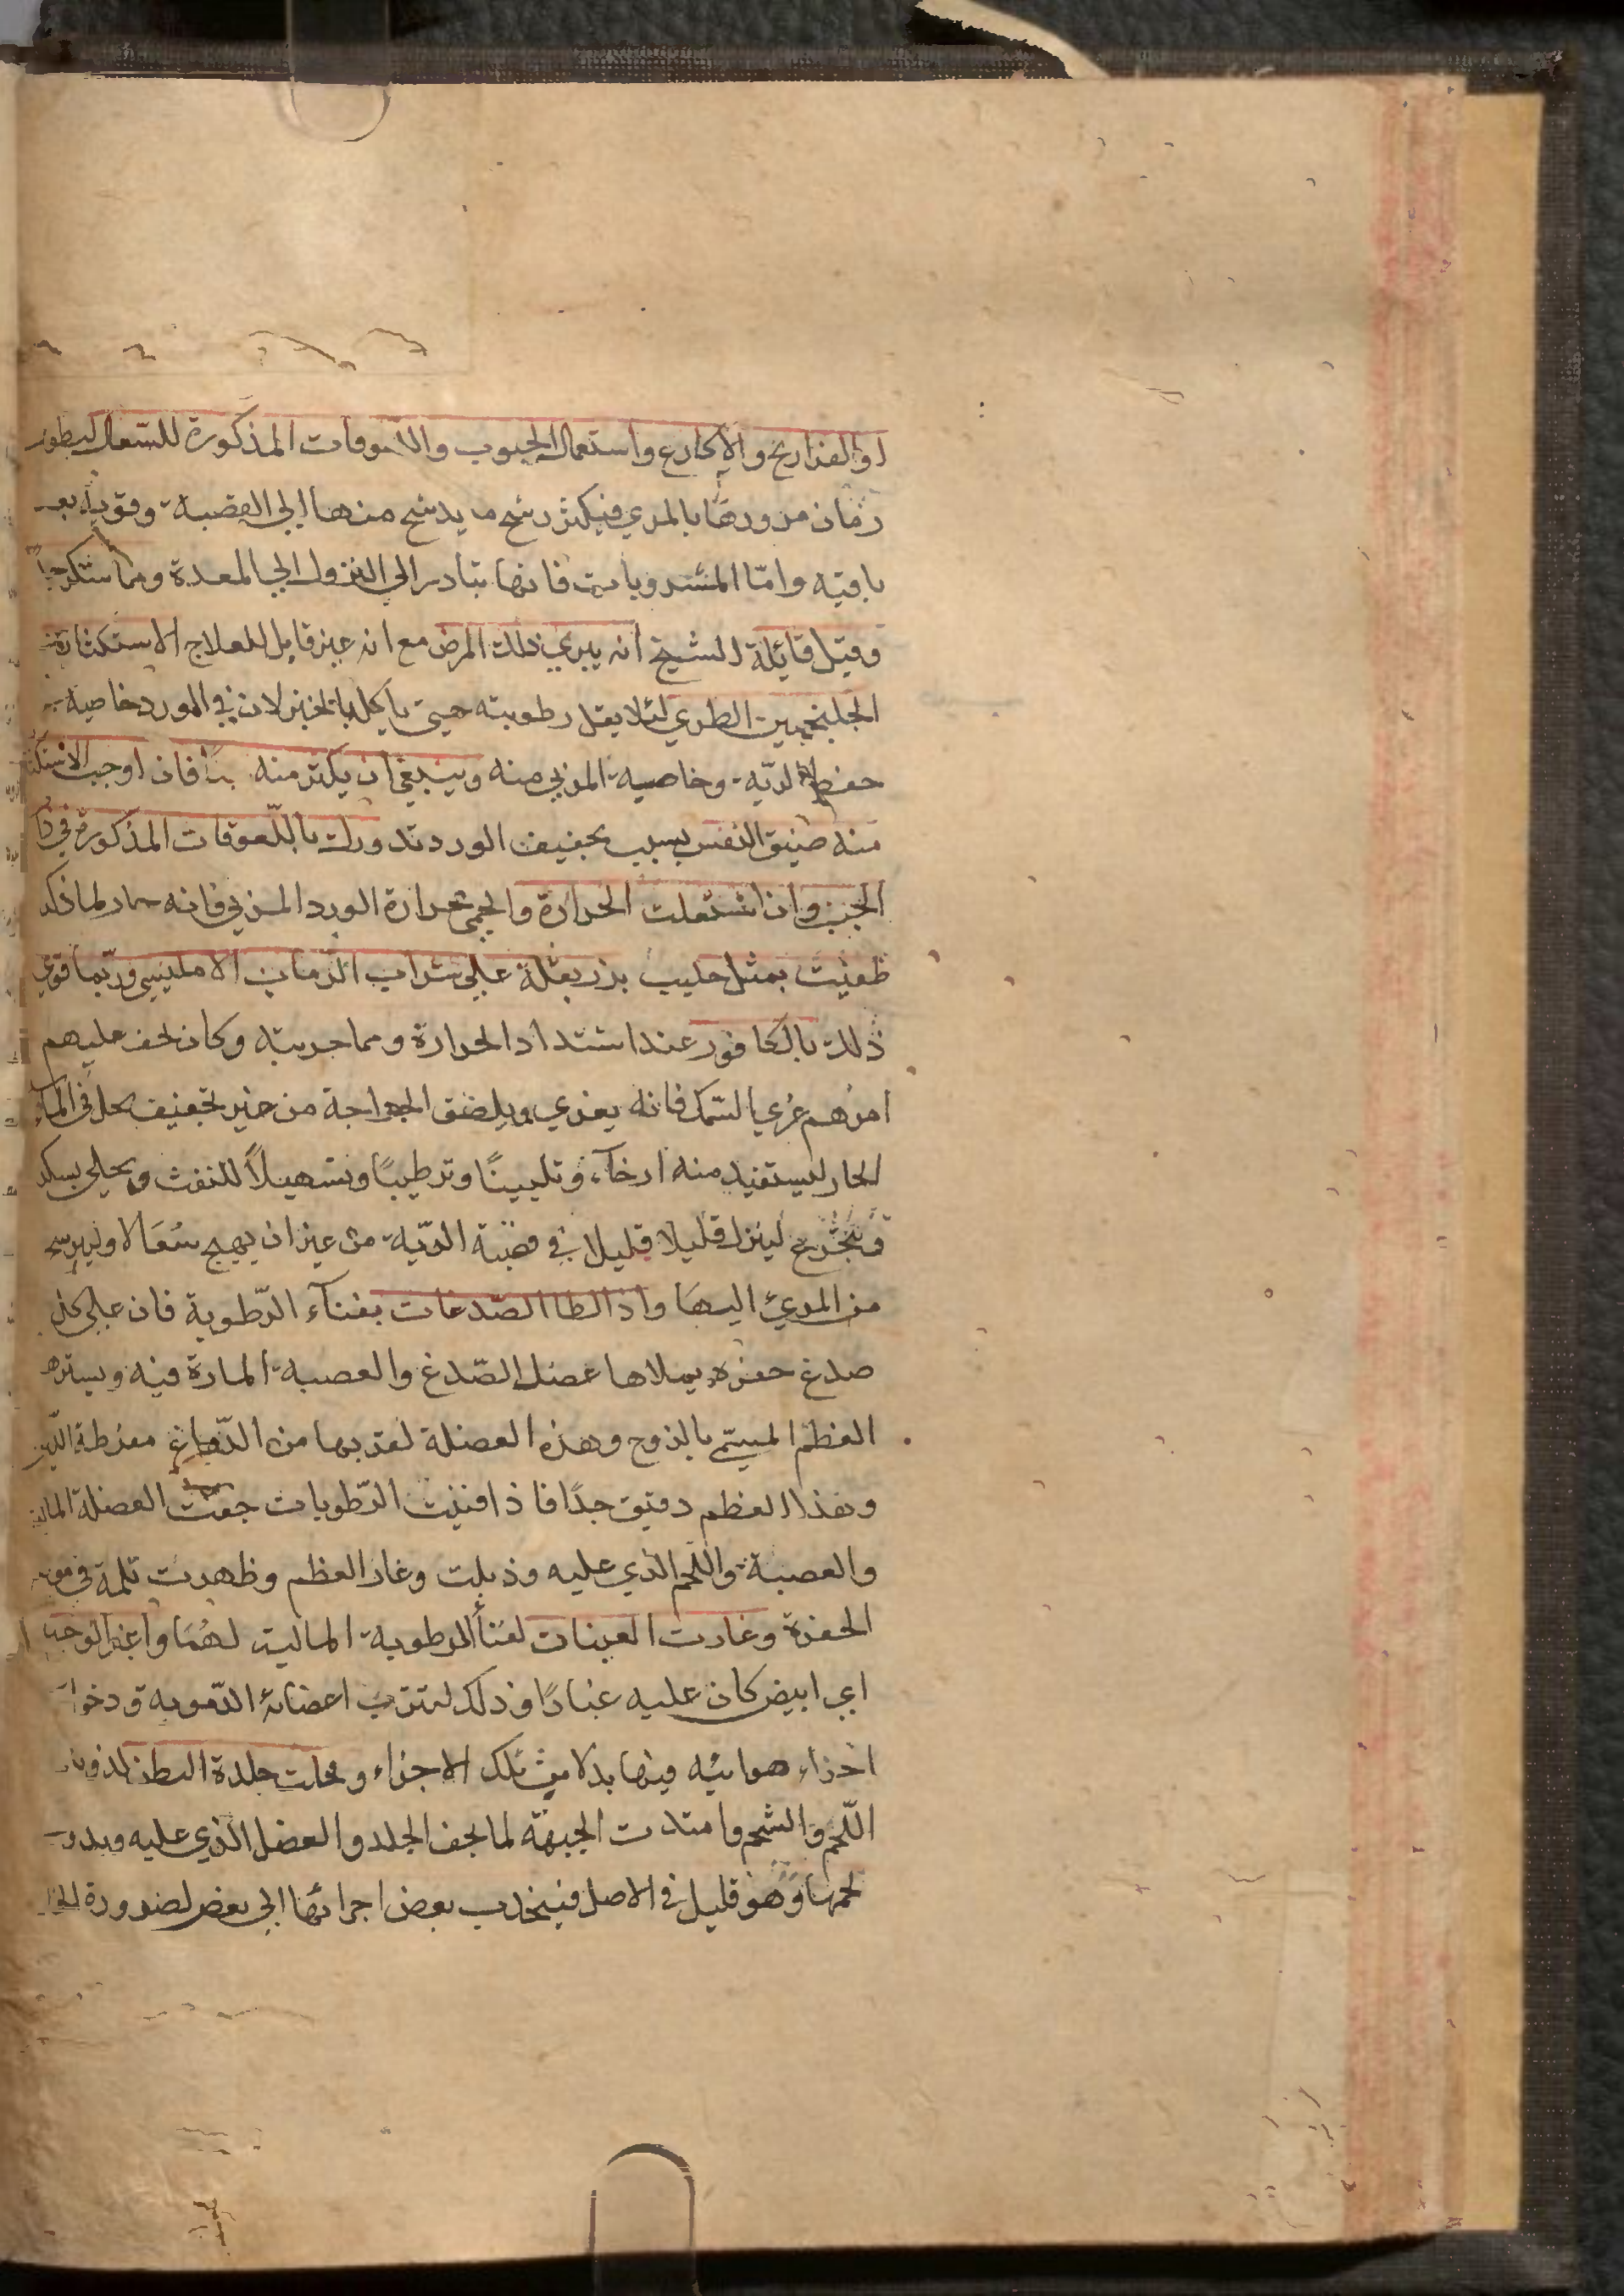 او الفراريخ والاكارع واستعمال الحبوب واللعوقات المذكورة للسّعال ليطول
زمان مرورها بالمري فيكثر رشح ما يرشح منها الى القصبة وقوته بعد
باقيه وامّا المشروبات فانها تبادر الى النزول الى المعدة ومما
وقيل قائلة الشيخ انه يبري ذلك المرض مع انه غير قابل للعلاج الاستكثار من
الجلنجبين الطري لئلا يقل رطوبته حتى ياكل بالخبز لان في الورد خاصية
حفظ الريّه وخاصية المربي منه وينبغي ان يكثر منه فان اوجب
منه ضيق النفس بسبب تجفيف الورد تدورك باللّعوقات المذكورة في
الجنب وان اشتعلت الحرارة والحمى بحرارة الورد المربي فانه حار لما ذكر
طفيت بمثل حليب بزر بقلة على شراب الرّمان الامليسي وربّما قوي
ذلك بالكافور عند اشتداد الحرارة ومما جربته وكان نخف عليهم
امرهم غري السّمك فانه يغري ويلصق الجراحة من غير تجفيف يحل في الماء
الحار ليستفيد منه ارخاء وتليينًا وترطيبًا وتسهيلاً للنفث ويحلى بسكر
ويتجرّع لينزل قليلا قليلا في قصبة الريّه من غير ان يهيج سُعالا
من المريء اليها واذا لطا الصّدغان بفناء الرّطوبة فان على كل
صدغ حفرة يملاها عضل الصّدغ والعصبة المارة فيه ويسترها
العظم المسمّى بالزوج وهذه العضلة لقربها من الدّماغ مفرطة
وهذا العظم دقيق جدًا فاذا فنيت الرّطوبات جفت العضلة
والعصبة واللّحم الذي عليه وذبلت وغار العظم وظهرت ثلمة في
الحفرة وغارت العينان لفنأ الرطوبة المالية لهُما واغبر الوجه
اي ابيض كان عليه غبارًا وذلك لتترّب اعضائه الدّمويه ودخول
اجزاء هوائيه فيها بدلا من تلك الاجزاء ومحلت جلدة البطن لذوبان
اللّحم والشحم وامتدت الجبهة لما يجف الجلد والعضل الذي عليه
لحمها وهو قليل في الاصل فينجذب بعض اجرائها الى بعض لضرورة